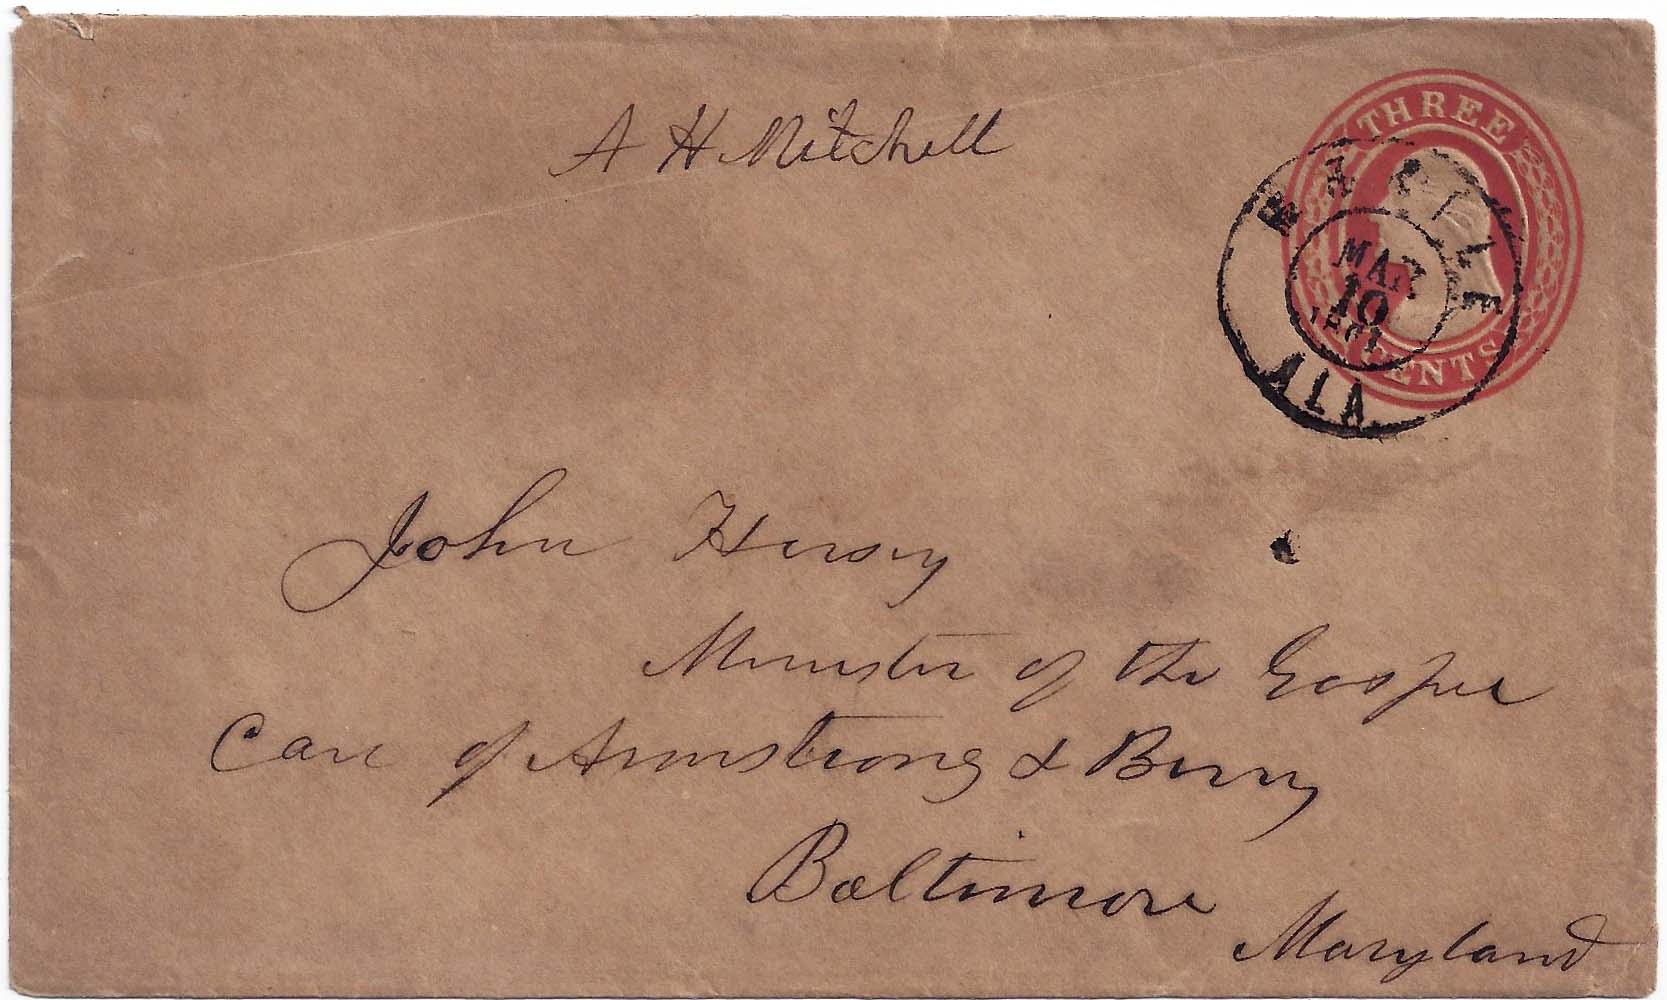 A H Mitchell
THREE
CENTS
ALA.
MAR
10
1861
John Hersey
Minister of the Gospel
Care of Armstrong & Berry
Baltimore
Maryland